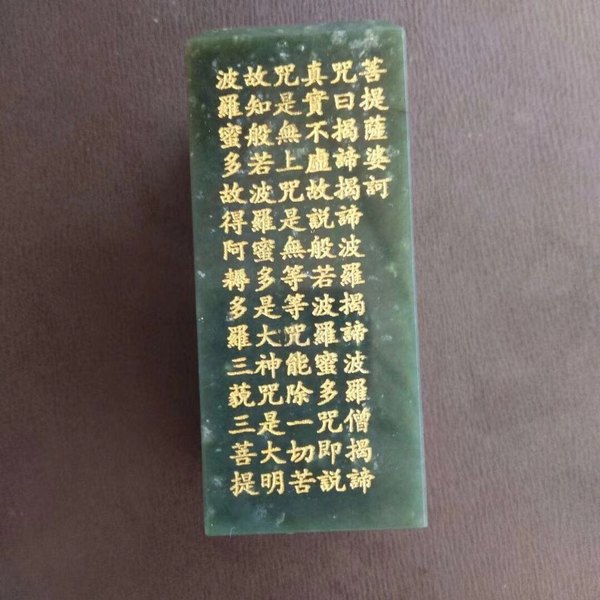 波羅蜜多故得阿耨多羅三藐三菩提
故知般若波羅蜜多是大神咒是大明
咒是無上咒是無等等咒能除一切苦
真實不虛故説般若波羅蜜多咒即説
咒曰揭諦揭諦波羅揭諦波羅僧揭諦
菩提薩婆訶